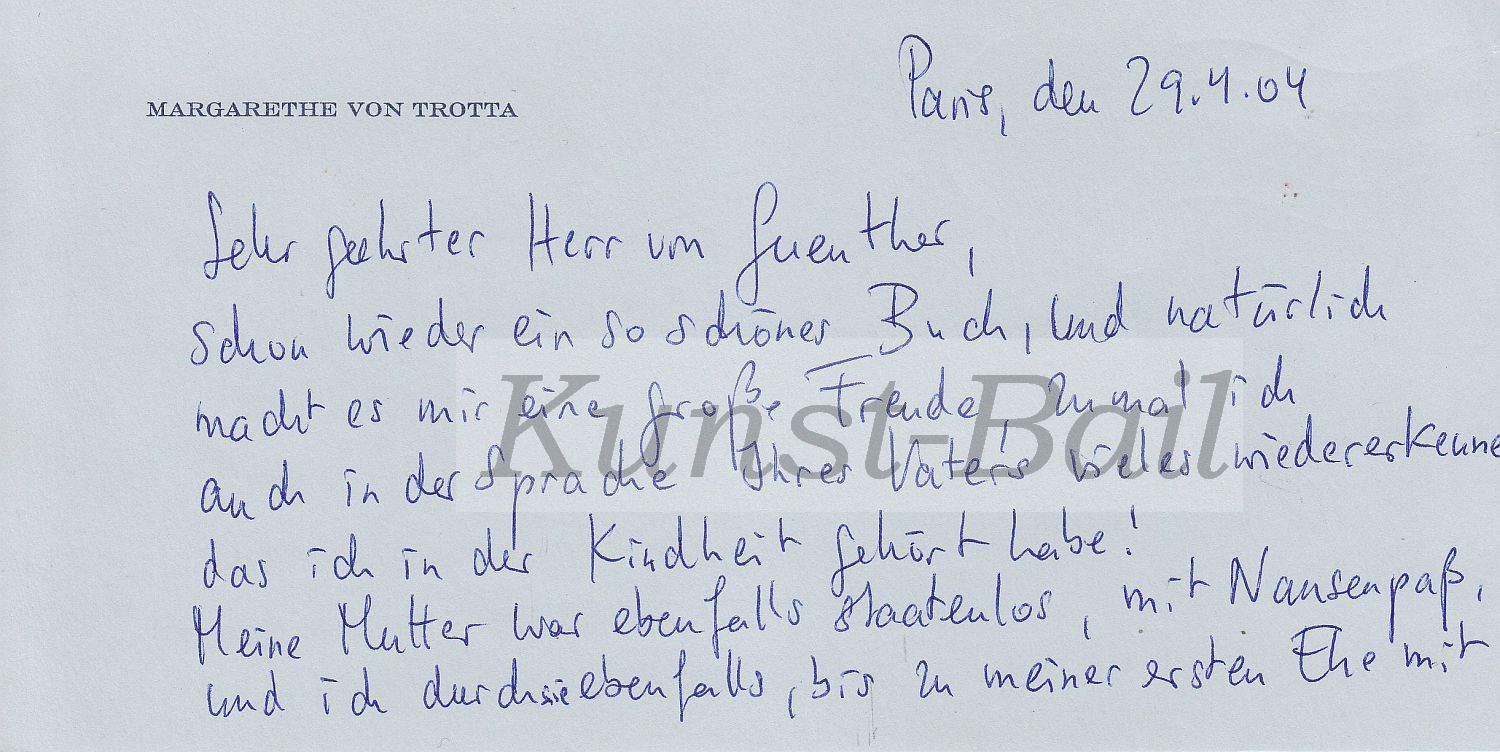 Paris, den 29.4.04
MARGARETHE VON TROTTA
Sehr geehrter Herr von Guenther,
schon wieder ein so schönes Buch, und natürlich
macht es mir eine große Freude, zumal ich
auch in der Sprache Ihres Vaters vieles wiedererkenne
das ich in der Kindheit gehört habe!
Meine Mutter war ebenfalls staatenlos, mit Nansenpaß,
und ich durch sie ebenfalls, bis zu meiner ersten Ehe mit
Kunst-Bail